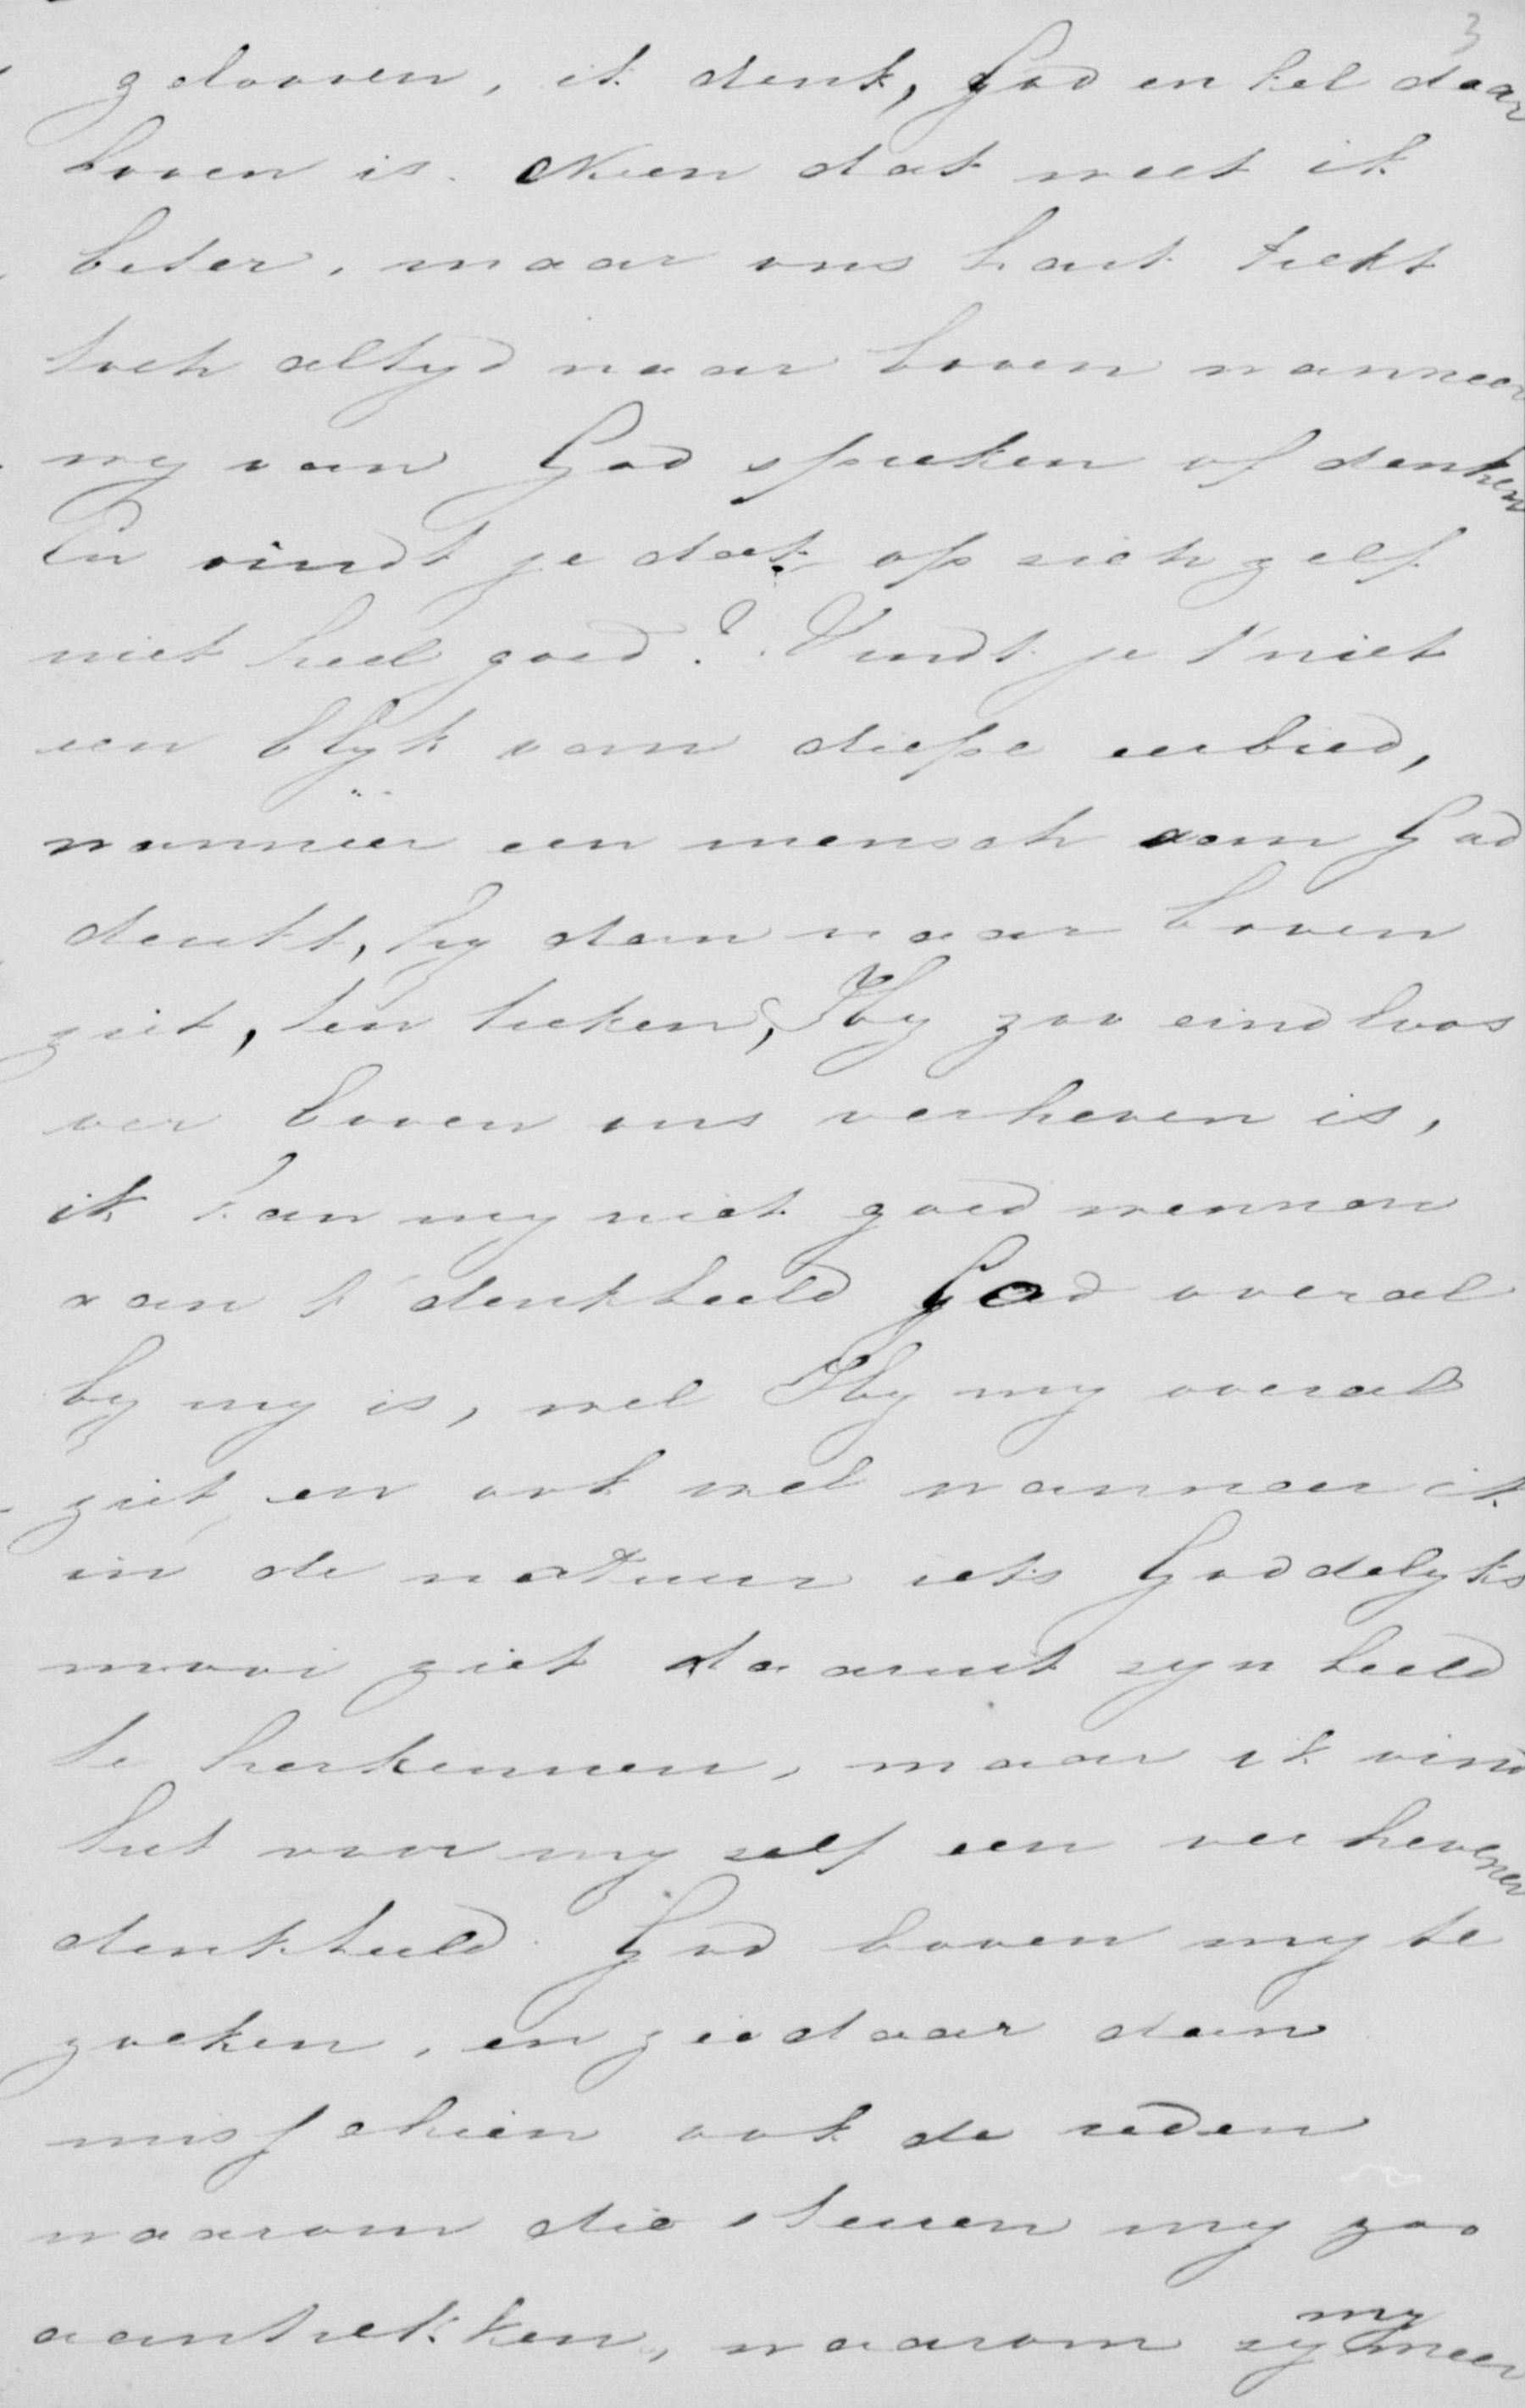 3
gelooven, ik denk, God enkel daar
boven is. Neen dat weet ik
beter, maar ons hart trekt
toch altyd naar boven wanneer
wy van God spreken of denken
En vindt je dat op zich zelf
niet heel goed? Vindt je 't niet
een blyk van diepe eerbied,
wanneer een mensch aan God
denkt, hy dan naar boven
ziet, ten teeken, Hy zoo eindloos
ver boven ons verheven is,
ik kan my niet goed wennen
aan 't denkbeeld God overal
by my is, wel Hy my overal
ziet en ook wel wanneer ik
in de natuur iets Goddelyks
mooi ziet daaruit zyn beeld
te herkennen, maar ik vind
het voor my zelf een verhevener
denkbeeld God boven my te
zoeken, en ziedaar dan
misschien ook de reden
waarom die sterren my zoo
my
aantrekken, waarom zy meer